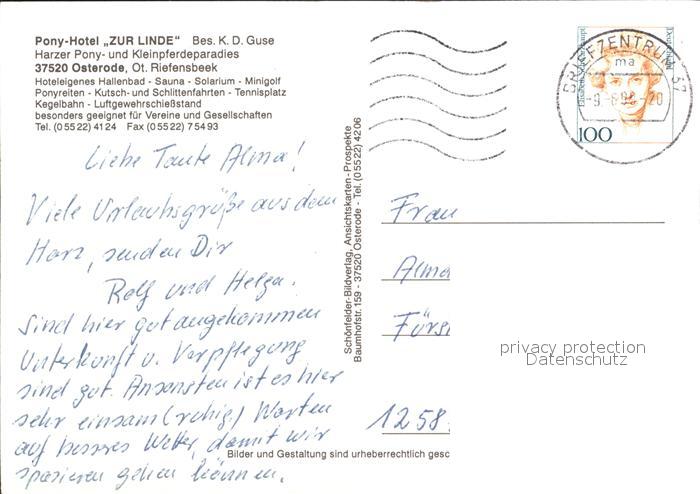 Pony-Hotel „ZUR LINDE" Bes. K. D. Guse
Harzer Pony- und Kleinpferdeparadies
37520 Osterode, Ot. Riefensbeek
Hoteleigenes Hallenbad - Sauna - Solarium - Minigolf
Ponyreiten - Kutsch- und Schlittenfahrten - Tennisplatz
Kegelbahn - Luftgewehrschießstand
besonders geeignet für Vereine und Gesellschaften
Tel. (05522) 4124 Fax (05522) 75493
Liebe Tante Alma!
Viele Urlaubsgrüße aus dem
Harz, senden Dir
Rolf und Helga.
Sind hier gut angekommen
Unterkunft u. Verpflegung
sind gut. Ansonsten ist es hier
sehr einsam (ruhig.) Warten
auf besseres Wetter, damit wir
spazieren gehen können.
Bilder und Gestaltung sind urheberrechtlich gesc
Schönfelder-Bildverlag, Ansichtskarten - Prospekte
Baumhofstr. 159 - 37520 Osterode - Tel. (05522) 4206
BRIEFZENTRUM 37
ma
-9.-8.98-20
Deutschland
100
Frau
Alma
Fürs
1258
privacy protection
Datenschutz